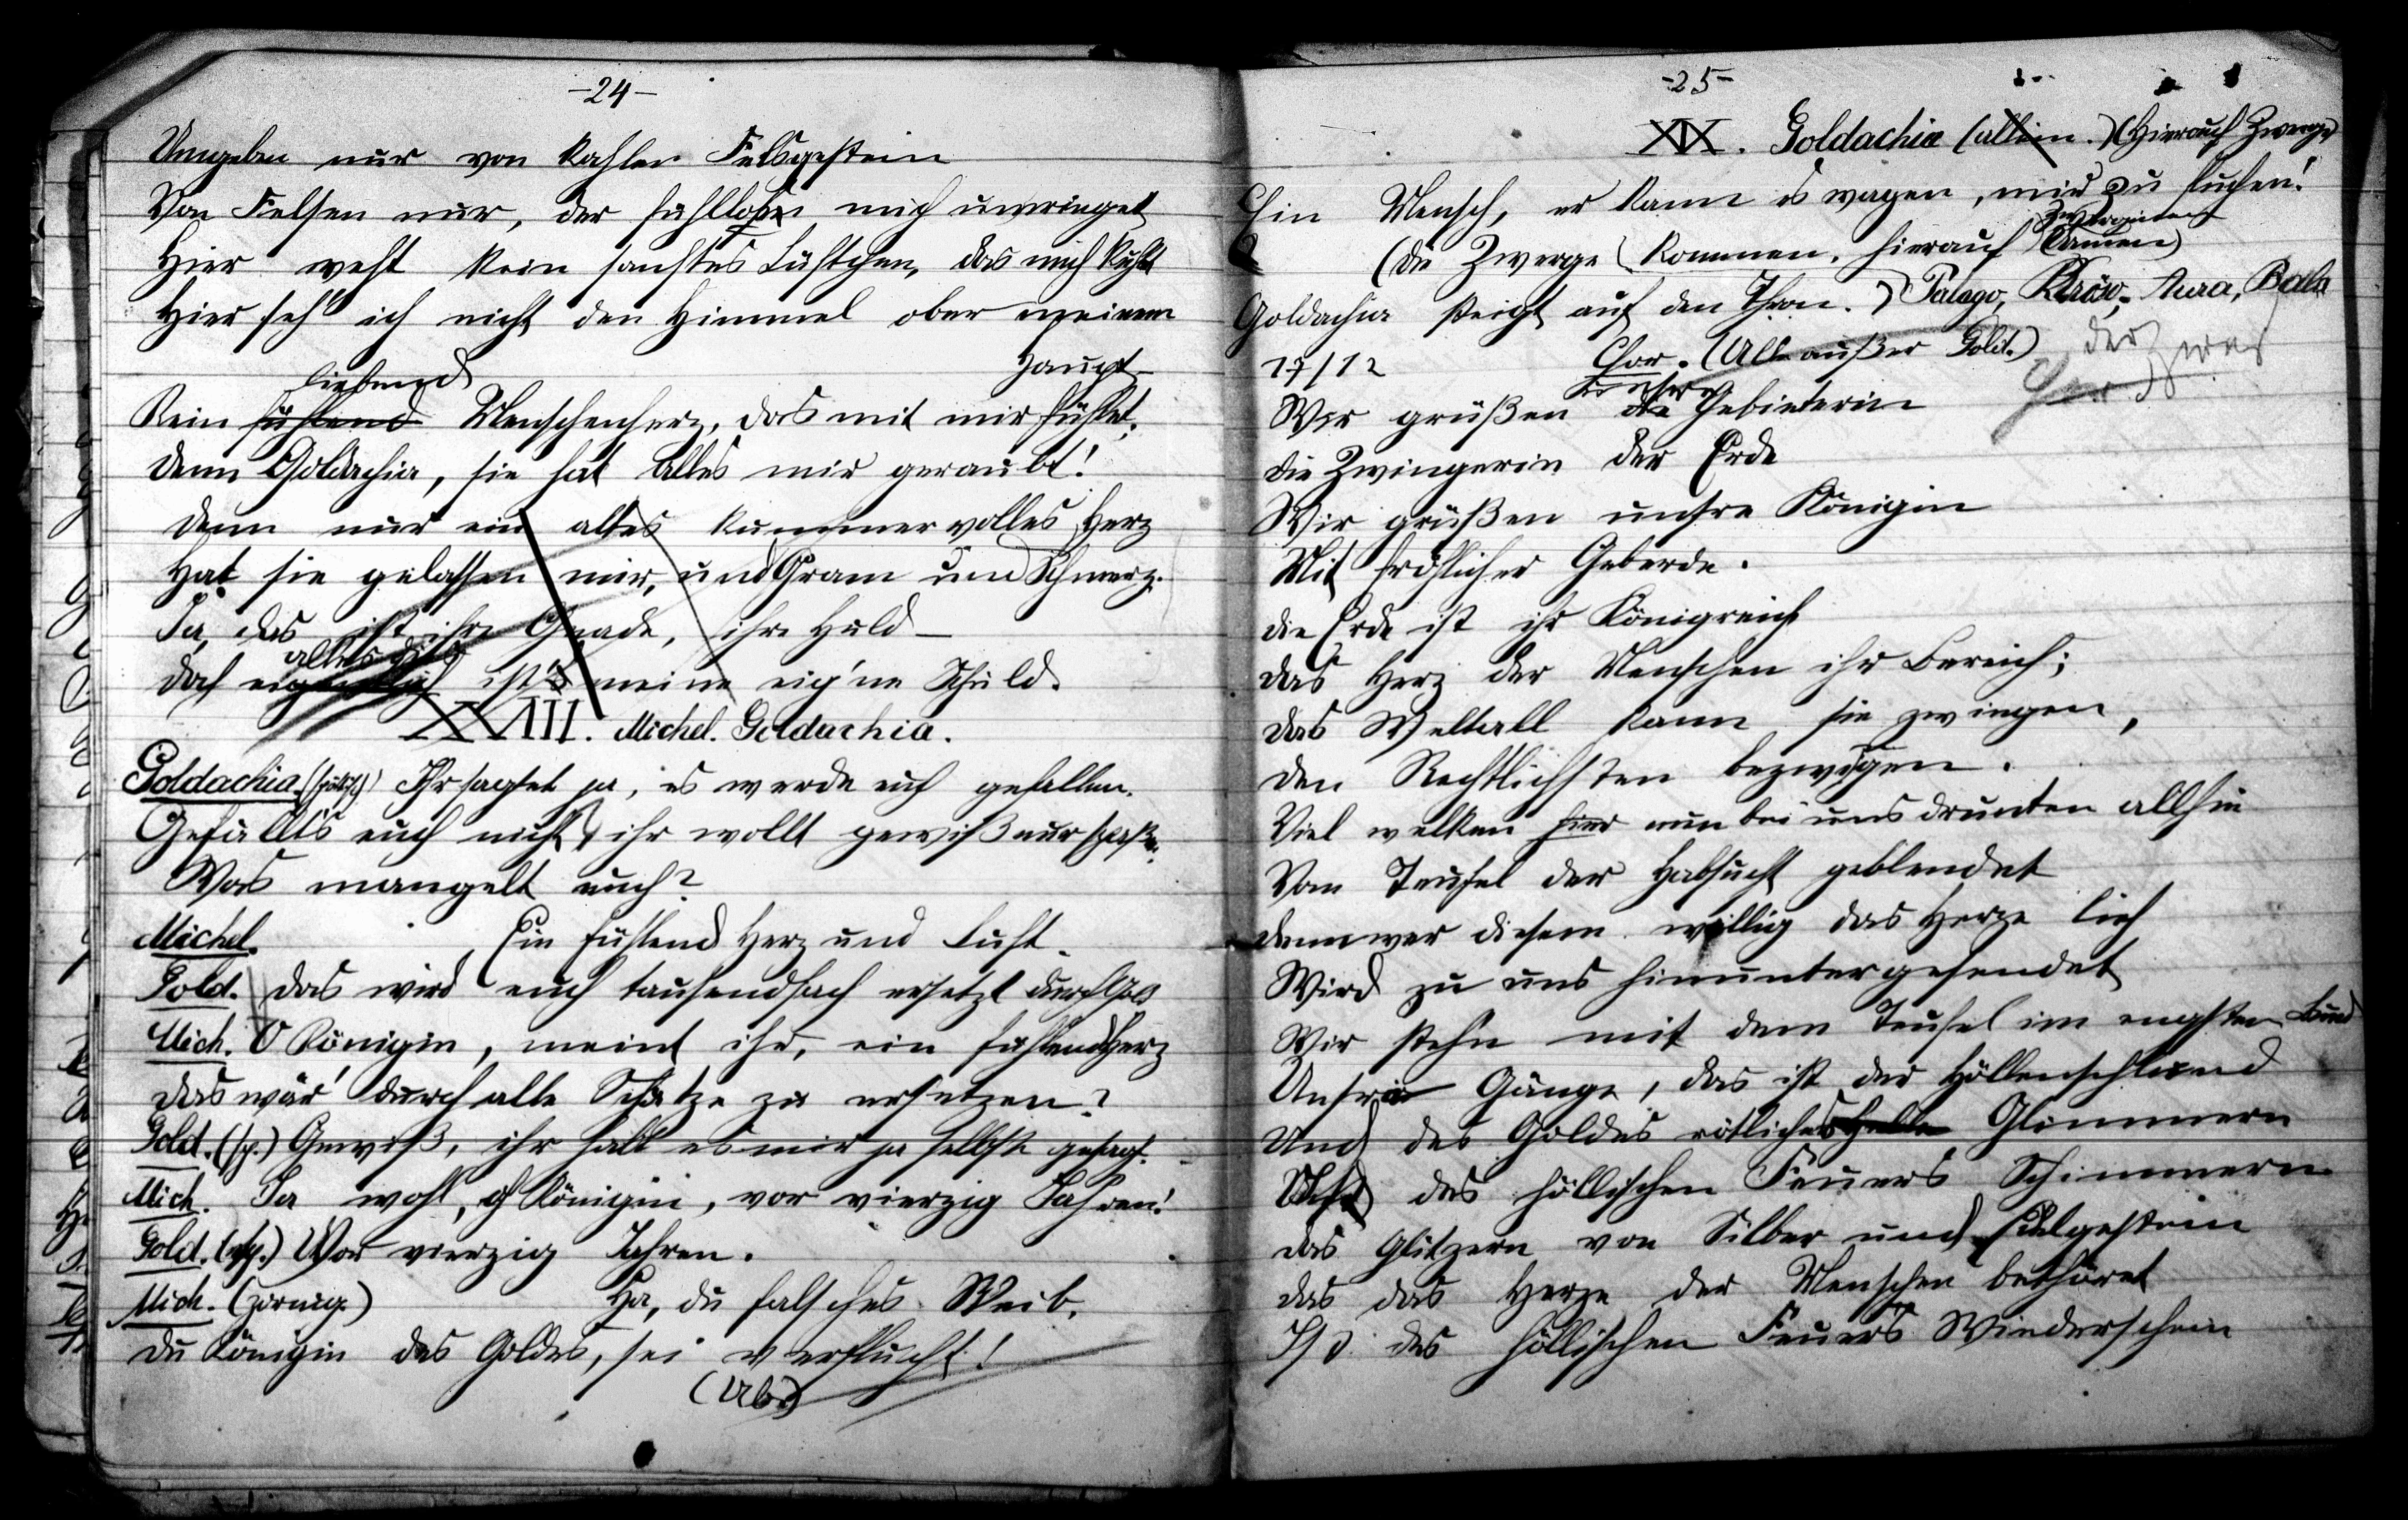 -24-
Umgeben nur von kahler Felsgestein
Von Felsen nur, der fühllosen mich umringet
Hier weht kein sanftes Lüftchen, das mich kühlt
Hier seh' ich nicht den Himmel ober meinem
Haupt
liebend
Kein fühlend Menschenherz, das mit mir fühlet,
denn Goldachia, sie hat alles mir geraubt!
denn nur ein altes kummervolles Herz
Hat sie gelassen mir, und Gram und Schmerz.
Ja, das ist ihre Gnade, ihre Huld –
alles dies
doch eigentlich ist's meine eig'ne Schuld.
XXVIII. Michel. Goldachia.
Goldachia. (spöttisch) Ihr sagtet ja, es werde euch gefallen.
Gefällt's euch nicht, ihr wollt gewiß nur spaßen.
Was mangelt euch?
Michel. Ein fühlend Herz und Luft.
Gold. das wird euch tausendfach ersetzt durch Gold
Mich. O Königin, meint ihr, ein fühlend Herz
das wär' durch alle Schätze zu ersetzen?
Gold. (sp.) Gewiß, ihr habt es mir ja selbst gesagt.
Mich. Ja wohl, o Königin, vor vierzig Jahren!
Gold. (sp.) Vor vierzig Jahren.
Mich. (zornig.) Ha, du falsches Weib,
du Königin des Goldes, sei verflucht!
(Ab.)
-25-
XIX. Goldachia (allein.) (Hierauf Zwerge)
Ein Mensch, er kann es wagen, mir zu fluchen!
Zwerginnen
(die Zwerge kommen, hierauf Damen)
Goldachia steigt auf den Thron.) Palago, Kröso, Aura, Bala
17/12 Chor. (Alle außer Gold.) der Zwerge
unsre
Wir grüßen die Gebieterin
die Zwingerin der Erde
Wir grüßen unsre Königin
Mit fröhlicher Geberde.
die Erde ist ihr Königreich
das Herz der Menschen ihr Bereich;
das Weltall kann sie zwingen,
den Rechtlichsten bezwingen.
Viel welken hier nun bei uns drunten allhie
Vom Teufel der Habsucht geblendet
denn wer diesem willig das Herze lieh
Wird zu uns hinuntergesendet
Wir stehn mit dem Teufel im engsten Bund
Unsre Gänge, das ist der Höllenschlund
Und des Goldes rötliches helle Glimmern
Ist des höllischen Feuers Schimmern
das Glitzern von Silber und Edelgestein
das das Herze der Menschen bethöret
Ist des höllischen Feuers Wiederschein